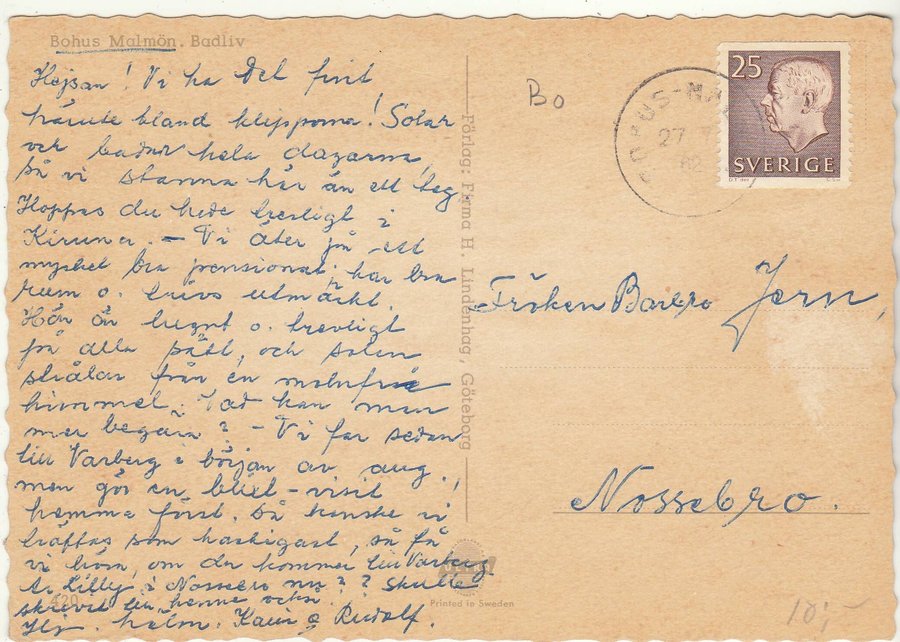 Bohus Malmön. Badliv
Hejsan! Vi ha det fint
häruute bland klipporna! Solar
och badar hela dagarna,
så vi stanna här än ett tag
Hoppas du hade trevligt i
Kiruna. - Vi äter på ett
mycket bra pensionat, har bra
rum o. trivs utmärkt.
Här är lugnt o. trevligt
på alla sätt, och solen
strålar från en molnfri
himmel. Vad kan man
mer begära? - Vi far sedan
till Varberg i början av aug.,
men gör en blixt-visit
hemma först. Då kanske vi
träffas som hastigast, så få
vi höra, om du kommer till Varberg
Är Lilly i Nossebro nu?? Skulle
skrivit till henne också.
Hj. häln. Karin o Rudolf.
420
Förlag: Firma H. Lindenhag, Göteborg
Printed in Sweden
Bo
27
25
SVERIGE
Fröken Barbro Jern,
Nossebro.
10:-